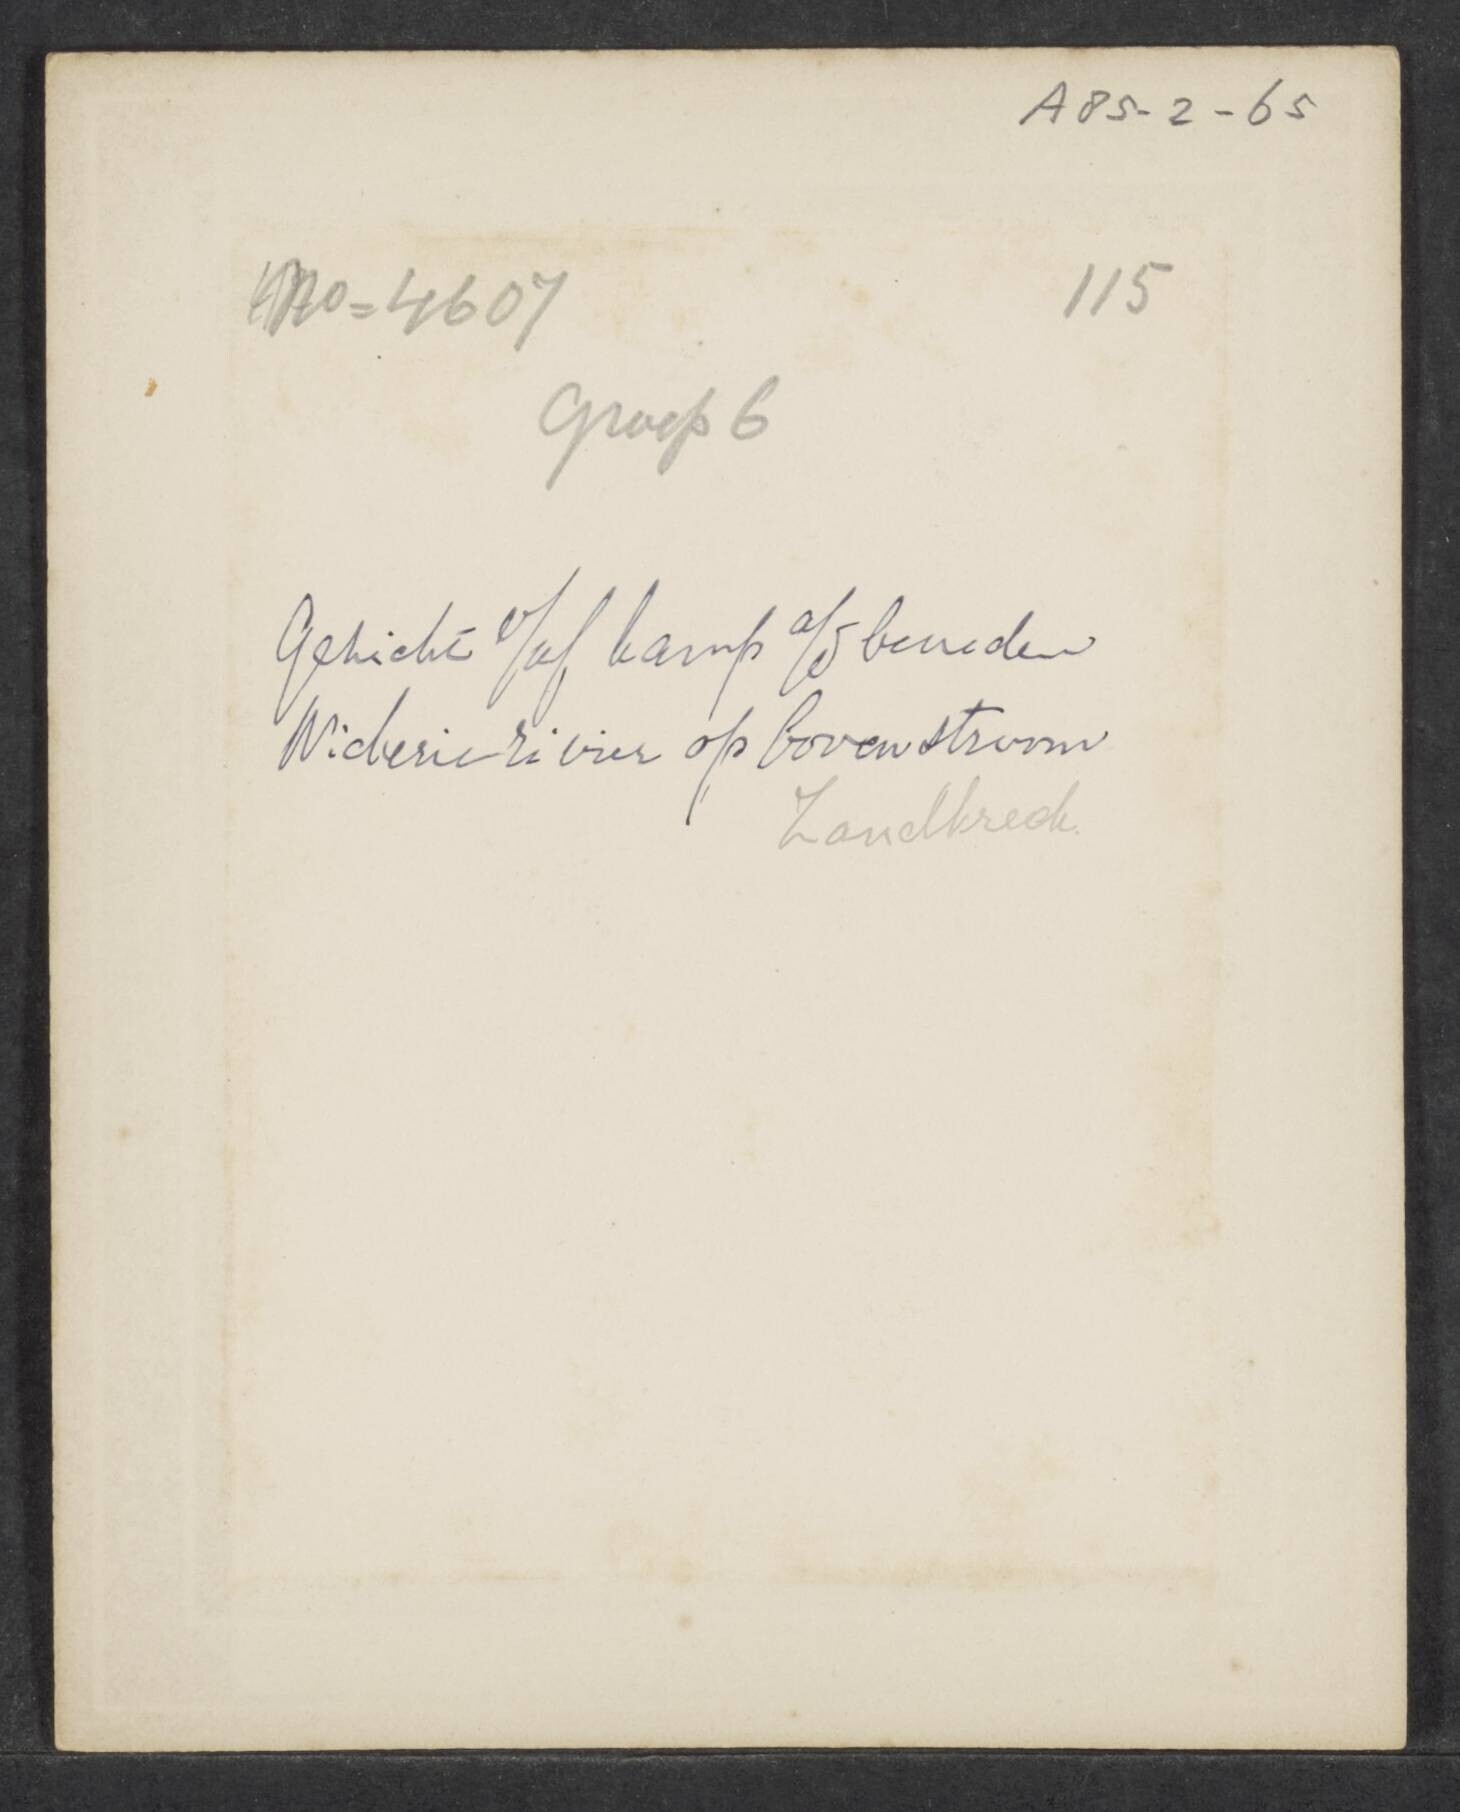 A85-2-65
No=4607
115
Groep 6
Gezicht v/af kamp a/d beneden
Wickerie-rivier op bovenstroom
Zandkreek.